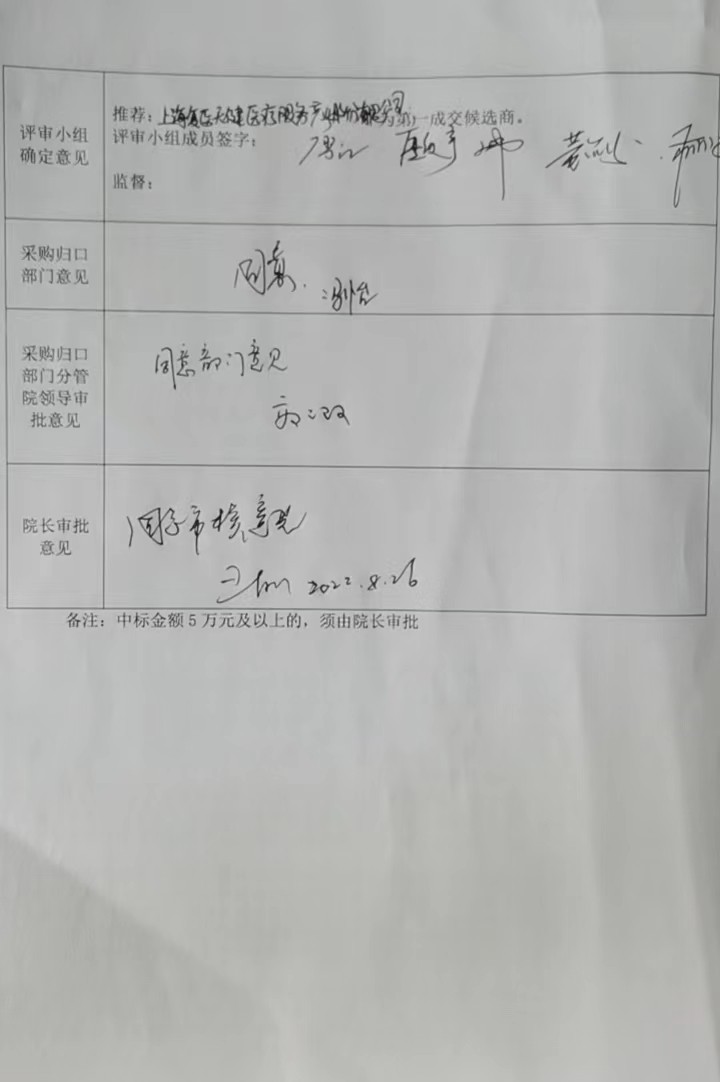 推荐：上海复医天健医疗服务产业股份有限公司为第一成交候选商。
评审小组
确定意见
评审小组成员签字：
监督：
采购归口
部门意见
同意
采购归口
部门分管
院领导审
批意见
同意部门意见
院长审批
意见
2022.8.26
备注：中标金额5万元及以上的，须由院长审批